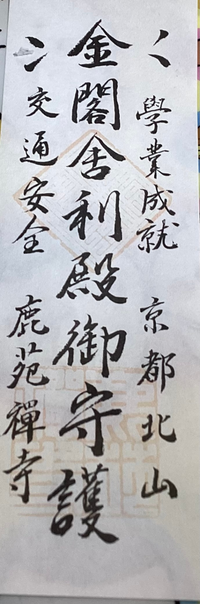 學業成就 京都北山
金閣舍利殿御守護
交通安全 鹿苑禪寺